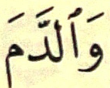 وَٱلدَّمَ